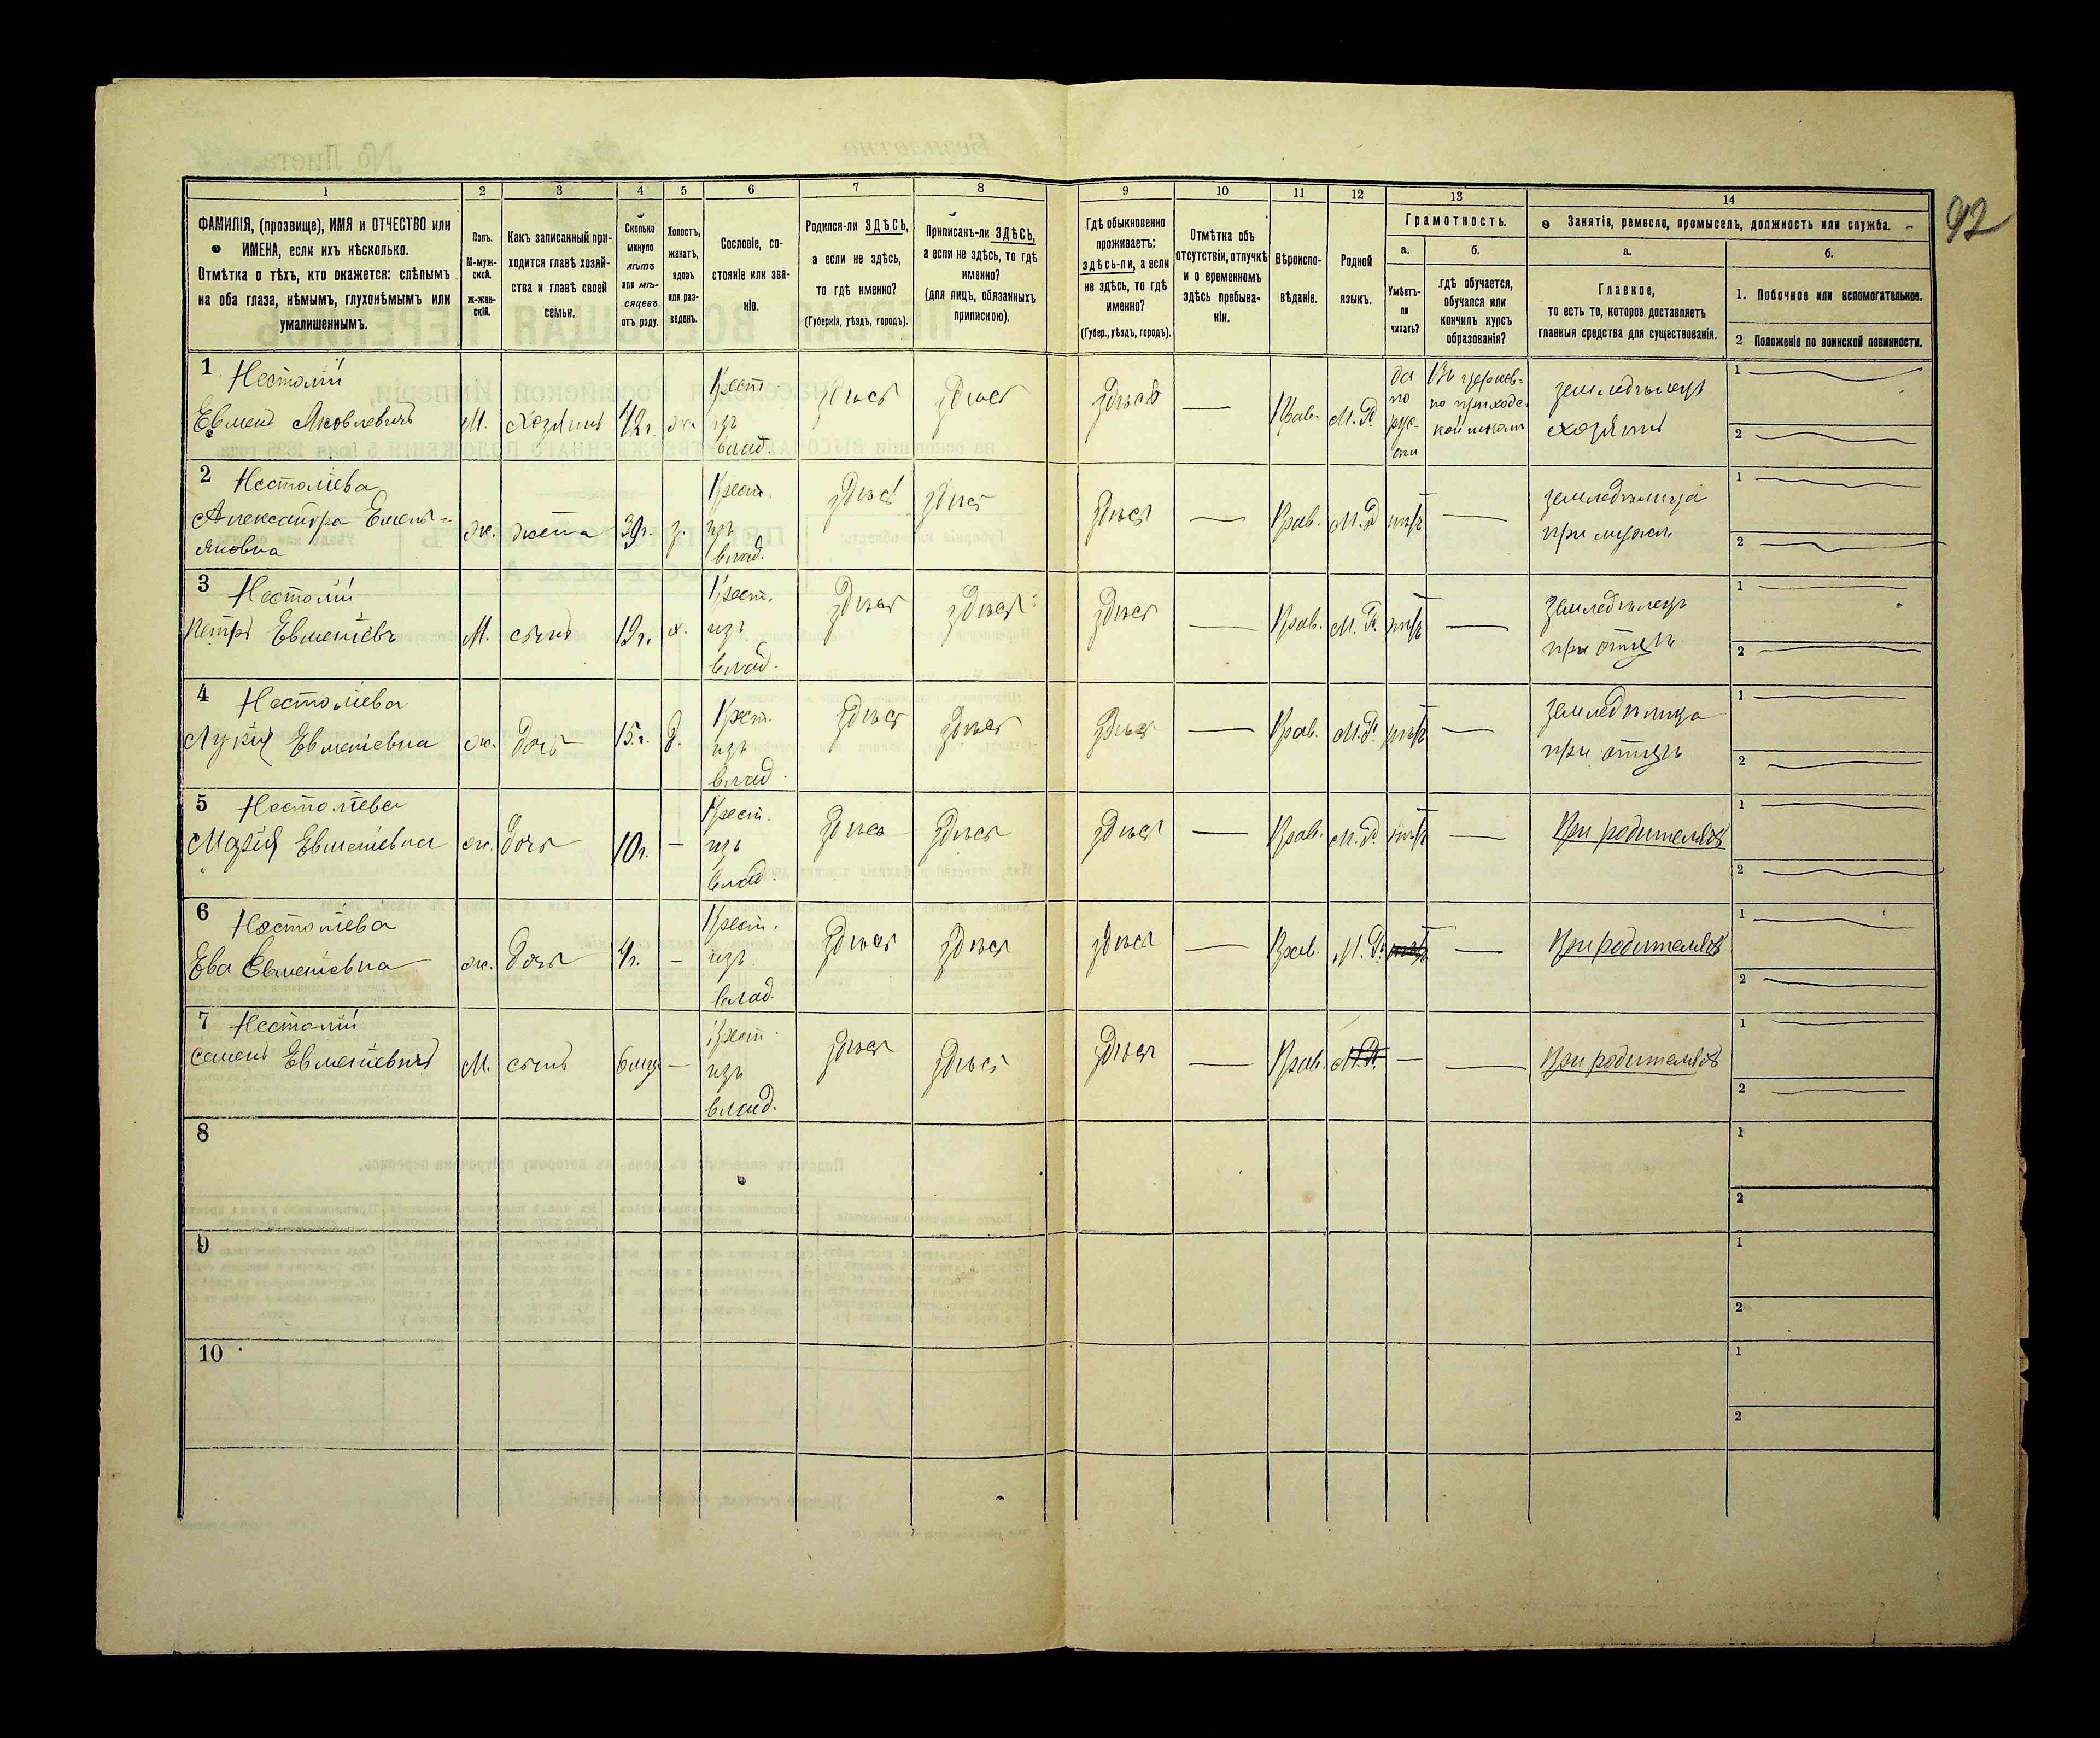 92
1 2 3 4 5 6 7 8 9 10 11 12 13 14
ФАМИЛІЯ, (прозвище), ИМЯ и ОТЧЕСТВО или
ИМЕНА, если ихъ нѣсколько.
Отмѣтка о тѣхъ, кто окажется: слѣпымъ
на оба глаза, нѣмымъ, глухонѣмымъ или
умалишеннымъ.
Полъ.
М-муж-
ской.
ж-жен-
скій.
Какъ записанный при-
ходится главѣ хозяй-
ства и главѣ своей
семьи.
Сколько
минуло
лѣтъ
или мѣ-
сяцевъ
отъ роду.
Холостъ,
женатъ,
вдовъ
или раз-
веденъ.
Сословіе, со-
стояніе или зва-
ніе.
Родился-ли ЗДѢСЬ,
а если не здѣсь,
то гдѣ именно?
(Губернія, уѣздъ, городъ).
Приписанъ-ли ЗДѢСЬ,
а если не здѣсь, то гдѣ
именно?
(для лицъ, обязанныхъ
припискою).
Гдѣ обыкновенно
проживаетъ:
здѣсь-ли, а если
не здѣсь, то гдѣ
именно?
(Губер., уѣздъ, городъ).
Отмѣтка объ
отсутствіи, отлучкѣ
и о временномъ
здѣсь пребыва-
ніи.
Вѣроиспо-
вѣданіе.
Родной
языкъ.
Грамотность.
а.
Умѣетъ-
ли
читать?
б.
гдѣ обучается,
обучался или
кончилъ курсъ
образованія?
Занятія, ремесло, промыселъ, должность или служба.
а.
Главное,
то есть то, которое доставляетъ
главныя средства для существованія.
б.
1. Побочное или вспомогательное.
2 Положеніе по воинской повинности.
1 Нестолій
Евмен Яковлевичъ М. хозяинъ 42 г. ж. Крест. изъ влад. здѣсь здѣсь здѣсь — Прав. М. Р. да по рус- ски Въ церков- но приходс- кой школѣ земледѣлецъ хозяинъ 1 2
2 Нестоліева
Александра Емель-
яновна ж. жена 39 г. з. Крест. изъ влад. здѣсь здѣсь здѣсь — Прав. М. Р. нѣтъ — земледѣлица при мужѣ 1 2
3 Нестолій
Петръ Евменіевъ М. сынъ 19 г. х. Крест. изъ влад. здѣсь здѣсь здѣсь — Прав. М. Р. нѣтъ — Земледѣлецъ при отцѣ 1 2
4 Нестоліева
Лукія Евменіевна ж. дочь 15 г. д. Крест. изъ влад. здѣсь здѣсь здѣсь — Прав. М. Р. нѣтъ — Земледѣлица при отцѣ 1 2
5 Нестоліева
Марія Евменіевна ж. дочь 10 г. — Крест. изъ влад. здѣсь здѣсь здѣсь — Прав. М. Р. нѣтъ — При родителяхъ 1 2
6 Нестоліева
Ева Евменіевна ж. дочь 4 г. — Крест. изъ влад. здѣсь здѣсь здѣсь — Прав. М. Р. нѣтъ — При родителяхъ 1 2
7 Нестолій
Семенъ Евменіевичъ М. сынъ 6 мц — Крест. изъ влад. здѣсь здѣсь здѣсь — Прав. М. Р. — — При родителяхъ 1 2
8 1 2
9 1 2
10 1 2